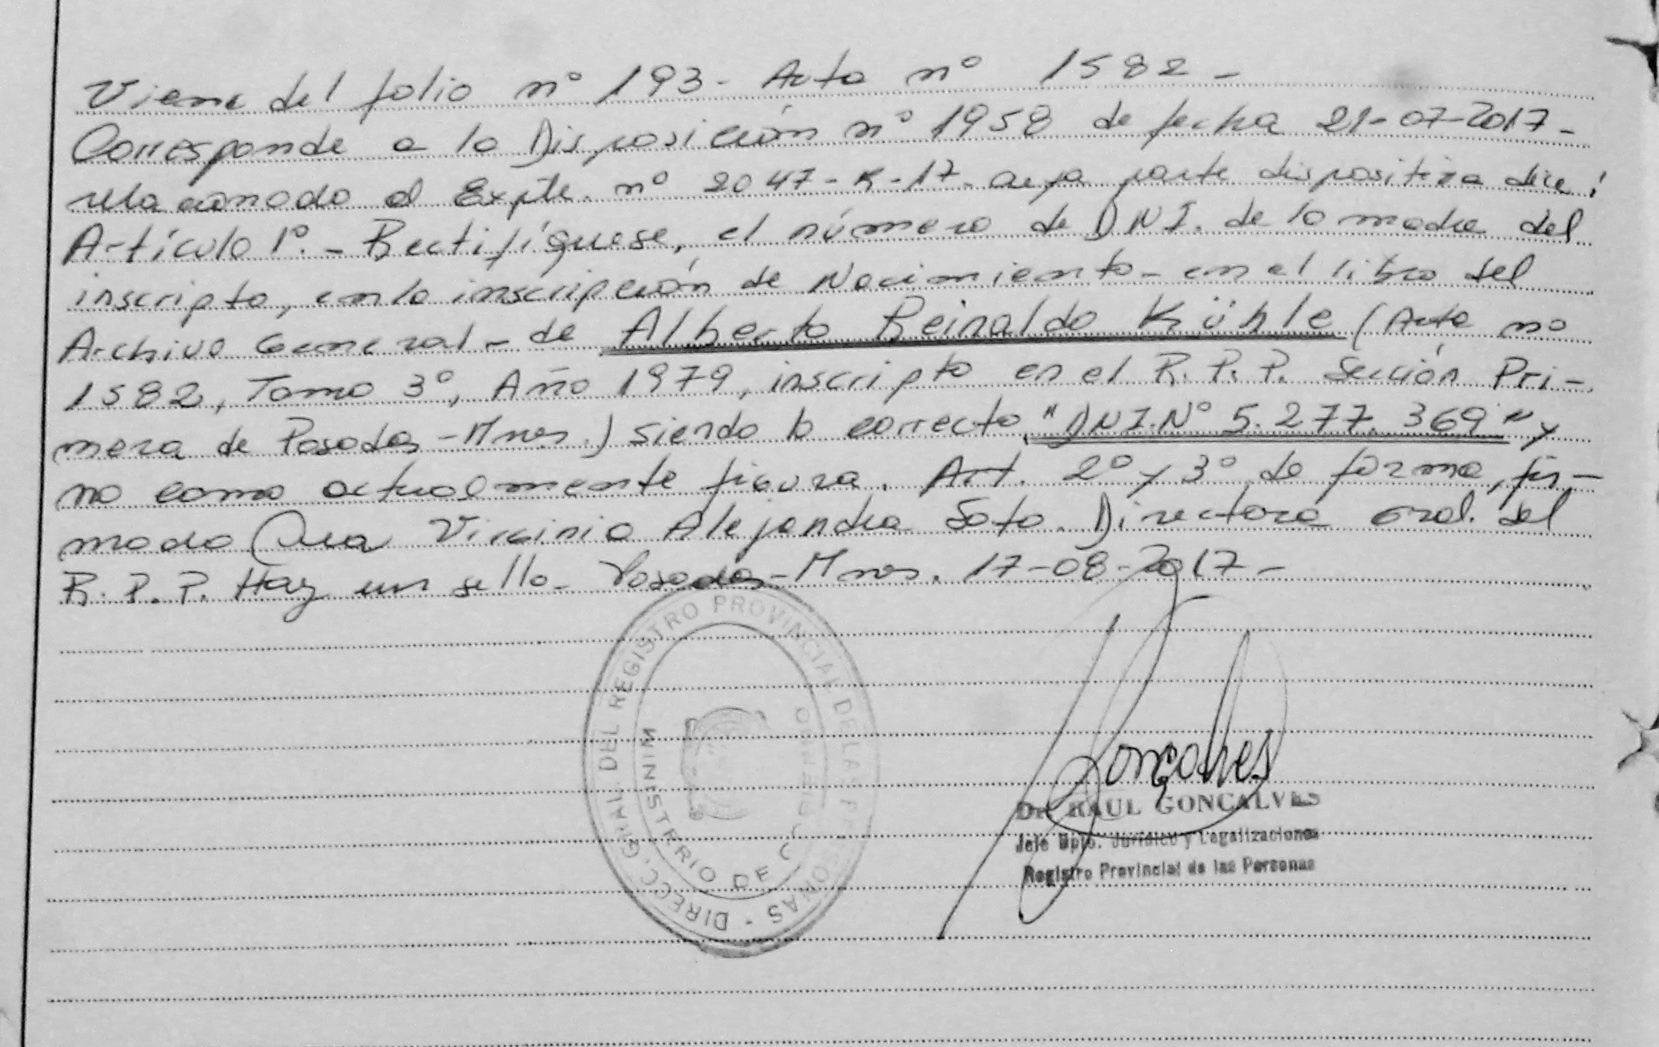 Viene del folio nº 193 - Acta nº 1582 -
Corresponde a la Disposición nº 1958 de fecha 21-07-2017 -
relacionado al Expte. nº 2047-K-17- cuya parte dispositiva dice:
Artículo 1º.- Rectifíquese, el número de DNI. de la madre del
inscripto, en la inscripción de Nacimiento - en el libro del
Archivo General - de Alberto Reinaldo Kühle (Acta nº
1582, Tomo 3º, Año 1979, inscripto en el R.P.P. Sección Pri-
mera de Posadas - Mnes.) siendo lo correcto "DNI.Nº 5.277.369" y
no como actualmente figura. Art. 2º y 3º de forma, fir-
mado Virginia Alejandra Soto. Directora Gral. del
R.P.P. Hay un sello - Posadas - Mnes. 17-08-2017 -
DIRECC. GRAL. DEL REGISTRO PROVINCIAL DE LAS PERSONAS -
MINISTERIO DE GOBIERNO
Gonçalves
Dr. RAUL GONÇALVES
Jefe Dpto. Jurídico y Legalizaciones
Registro Provincial de las Personas